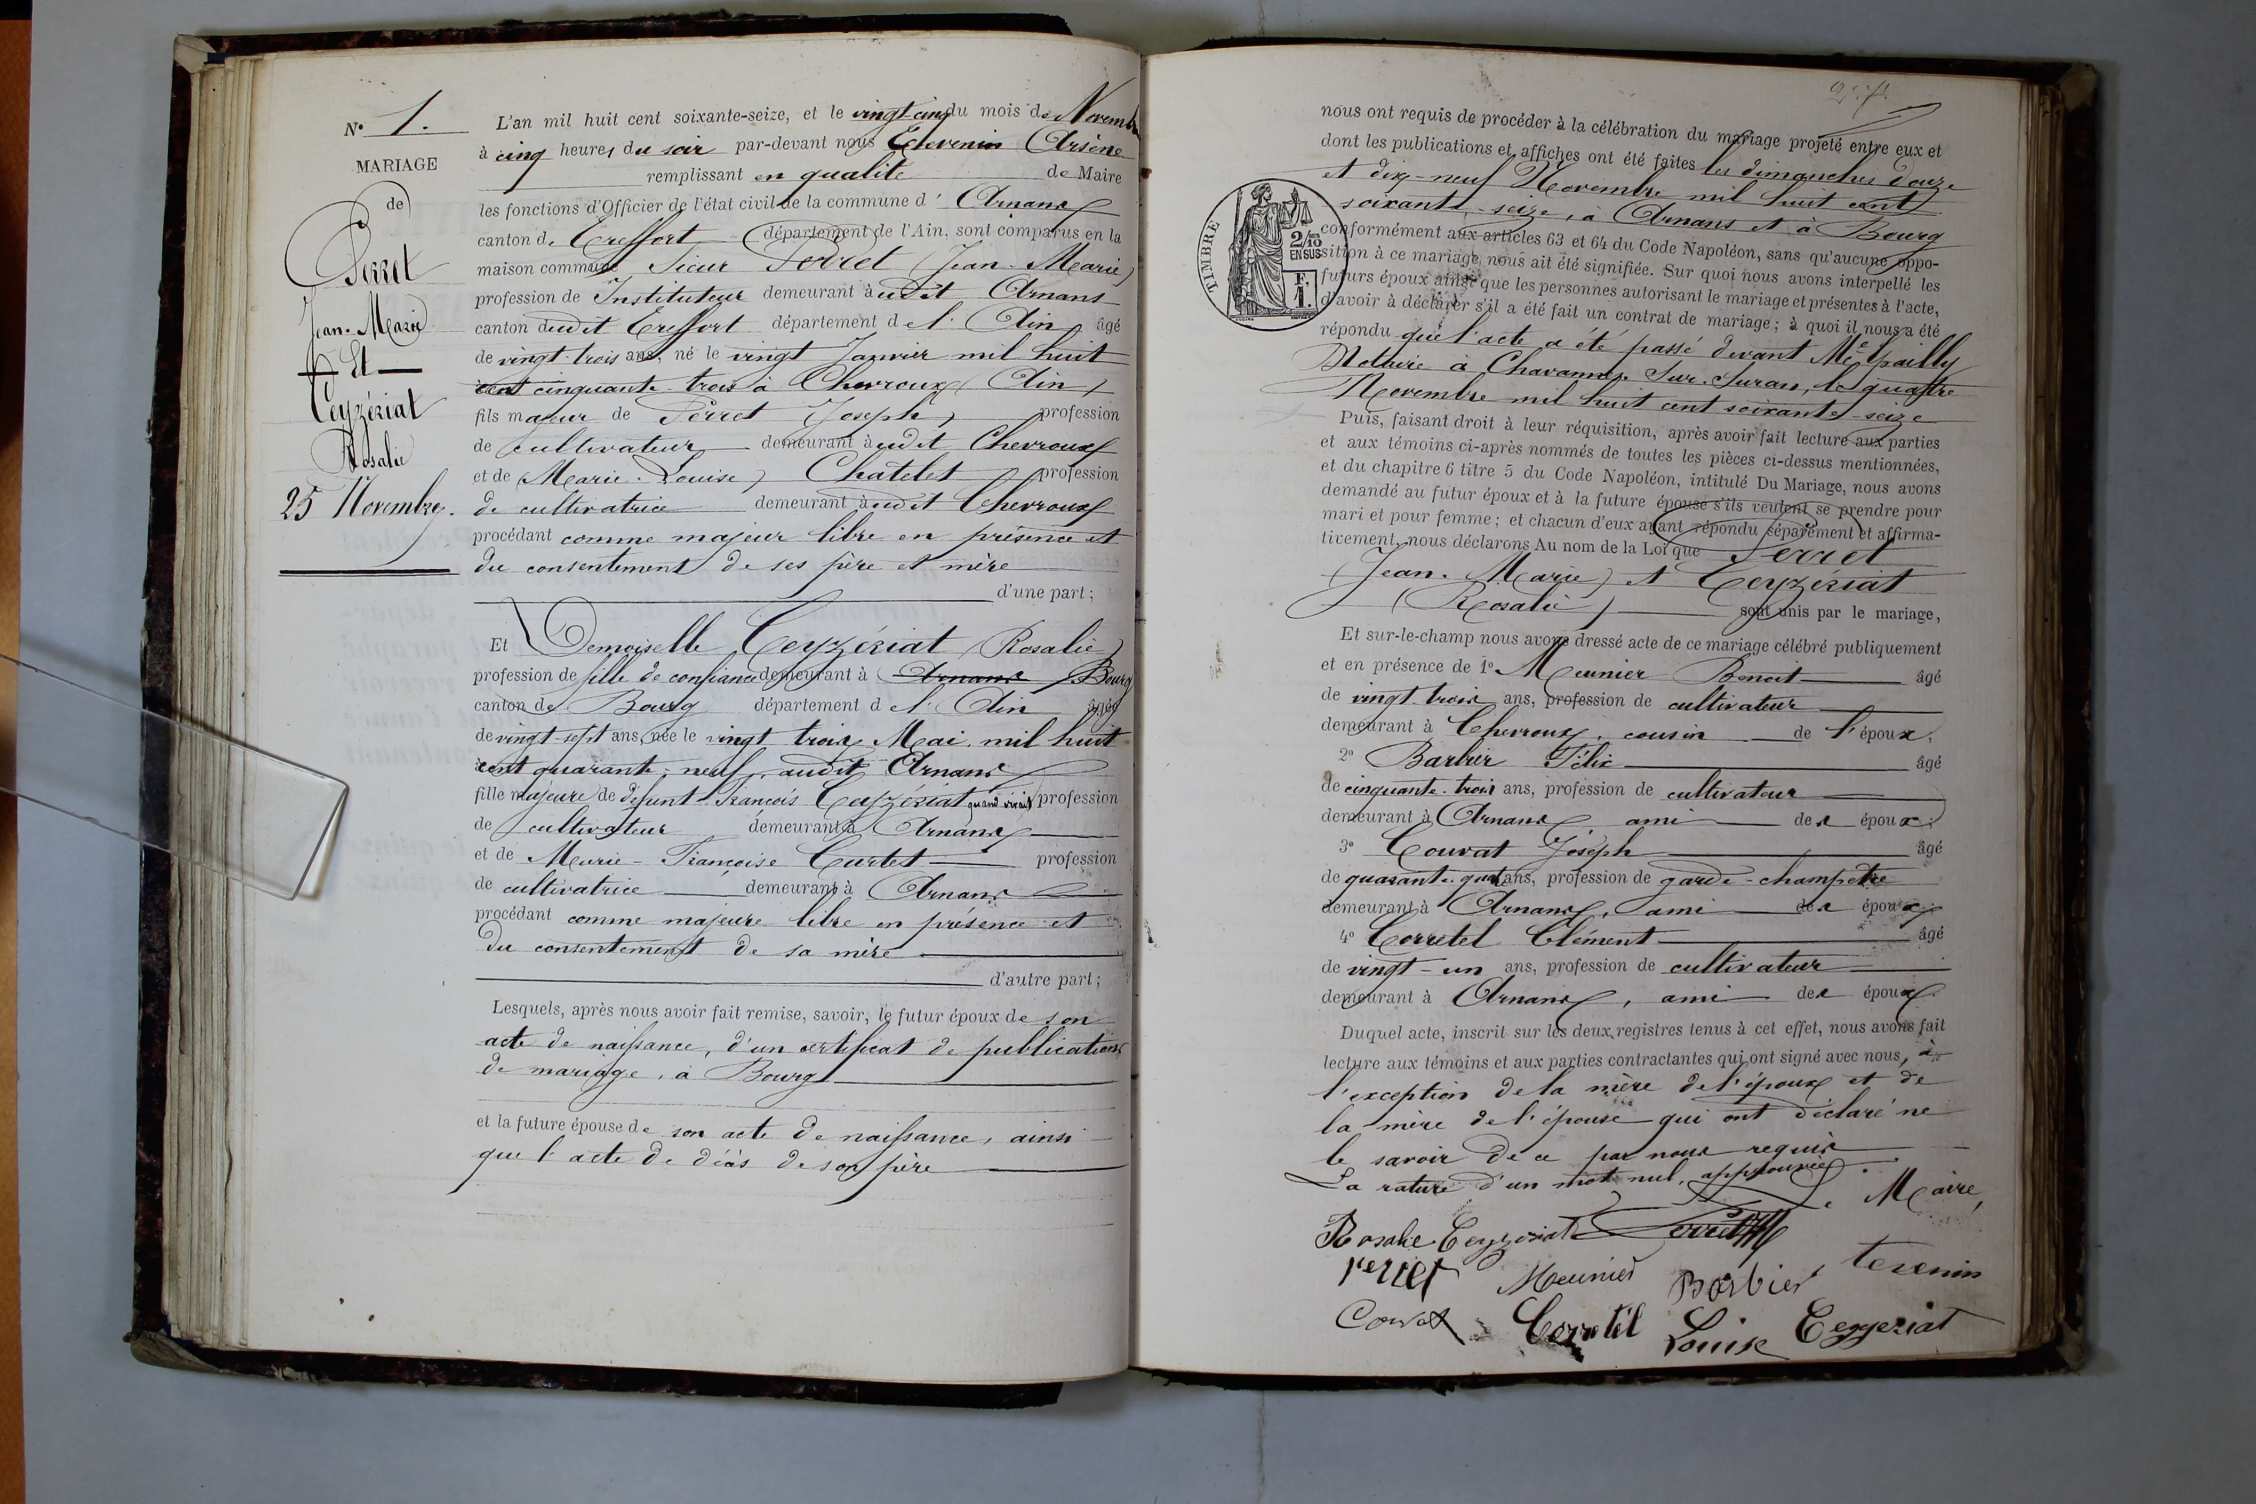 N° 1.
MARIAGE
de
Perret
Jean-Marie
Et
Ceyzériat
Rosalie
25 Novembre.
L'an mil huit cent soixante-seize, et le vingt cinq du mois de Novembre
à cinq heures du soir par-devant nous Thevenin Arsène
remplissant en qualité de Maire
les fonctions d'Officier de l'état civil de la commune d' Arnans
canton de Treffort département de l'Ain, sont comparus en la
maison commune Sieur Perret (Jean-Marie)
profession de Instituteur demeurant à udit Arnans
canton dudit Treffort département de l' Ain âgé
de vingt-trois ans, né le vingt Janvier mil huit
cent cinquante-trois à Chevroux (Ain)
fils majeur de Perret Joseph, profession
de cultivateur demeurant à udit Chevroux
et de (Marie-Louise) Chatelet profession
de cultivatrice demeurant à udit Chevroux
procédant comme majeur libre en présence et
du consentement de ses père et mère
d'une part;
Et Demoiselle Ceyzériat (Rosalie)
profession de fille de confiance demeurant à Arnans Bourg
canton de Bourg département de l' Ain âgée
de vingt-sept ans, née le vingt trois Mai mil huit
cent quarante-neuf, audit Arnans
fille majeure de défunt François Ceyzériat quand vivait profession
de cultivateur demeurant à Arnans
et de Marie-Françoise Curtet profession
de cultivatrice demeurant à Arnans
procédant comme majeure libre en présence et
du consentement de sa mère
d'autre part;
Lesquels, après nous avoir fait remise, savoir, le futur époux de son
acte de naissance, d'un certificat de publications
de mariage, à Bourg
et la future épouse de son acte de naissance, ainsi
que l'acte de décès de son père
TIMBRE
2/10
EN SUS
F.
1.
nous ont requis de procéder à la célébration du mariage projeté entre eux et
dont les publications et affiches ont été faites les dimanches douze
et dix-neuf Novembre mil huit cent
soixante-seize, à Arnans et à Bourg
conformément aux articles 63 et 64 du Code Napoléon, sans qu'aucune oppo-
sition à ce mariage nous ait été signifiée. Sur quoi nous avons interpellé les
futurs époux ainsi que les personnes autorisant le mariage et présentes à l'acte,
d'avoir à déclarer s'il a été fait un contrat de mariage; à quoi il nous a été
répondu que l'acte a été passé devant Me Pailly
Notaire à Chavannes-Sur-Suran, le quatre
Novembre mil huit cent soixante-seize
Puis, faisant droit à leur réquisition, après avoir fait lecture aux parties
et aux témoins ci-après nommés de toutes les pièces ci-dessus mentionnées,
et du chapitre 6 titre 5 du Code Napoléon, intitulé Du Mariage, nous avons
demandé au futur époux et à la future épouse s'ils veulent se prendre pour
mari et pour femme; et chacun d'eux ayant répondu séparément et affirma-
tivement, nous déclarons Au nom de la Loi que Perret
(Jean-Marie) et Ceyzériat
(Rosalie) sont unis par le mariage,
Et sur-le-champ nous avons dressé acte de ce mariage célébré publiquement
et en présence de 1° Meunier Benoit âgé
de vingt trois ans, profession de cultivateur
demeurant à Chevroux, cousin de l'époux,
2° Barbier Félix âgé
de cinquante-trois ans, profession de cultivateur
demeurant à Arnans ami des époux;
3° Couvat Joseph âgé
de quarante-quatre ans, profession de garde-champêtre
demeurant à Arnans, ami des époux
4° Corretel Clément âgé
de vingt-un ans, profession de cultivateur
demeurant à Arnans, ami des époux
Duquel acte, inscrit sur les deux registres tenus à cet effet, nous avons fait
lecture aux témoins et aux parties contractantes qui ont signé avec nous, à
l'exception de la mère de l'époux et de
la mère de l'épouse qui ont déclaré ne
le savoir de ce par nous requis
La rature d'un mot nul, approuvée.
Le Maire,
Rosalie Ceyzeriat Perret
Perret Meunier Barbier Tevenin
Couvat Corretel Louise Ceyzeriat